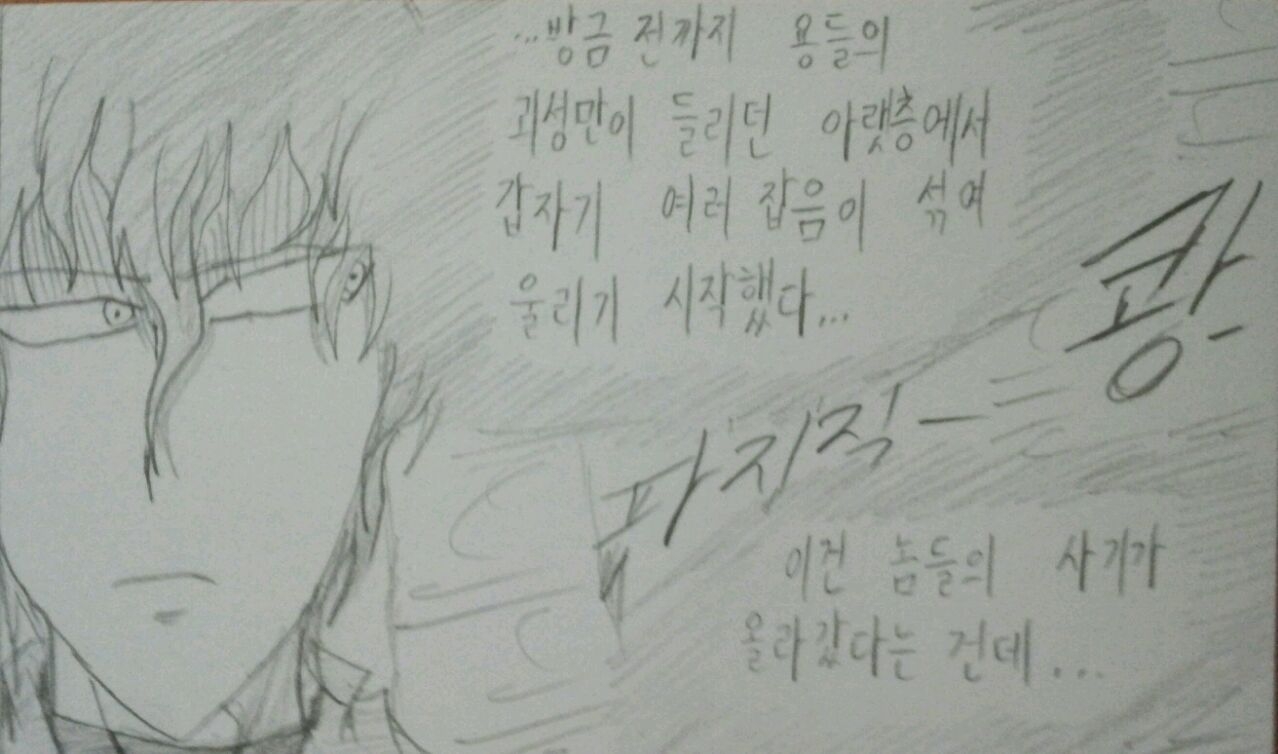 ...방금 전까지 용들의
괴성만이 들리던 아랫층에서
갑자기 여러 잡음이 섞여
울리기 시작했다...
쾅-
파지직-
이건 놈들의 사기가
올라갔다는 건데...